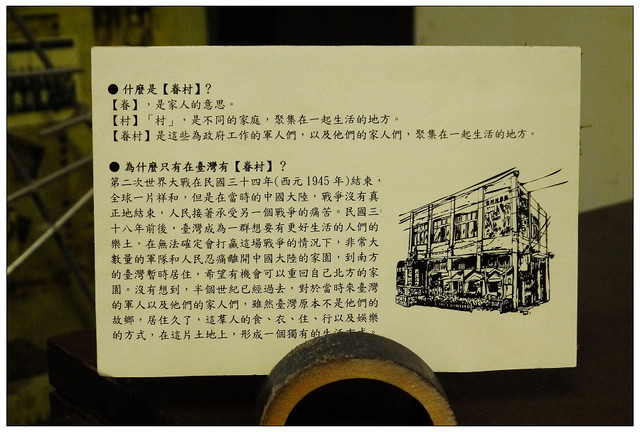 ● 什麼是【眷村】?
【眷】,是家人的意思。
【村】「村」,是不同的家庭,聚集在一起生活的地方。
【眷村】是這些為政府工作的軍人們,以及他們的家人們,聚集在一起生活的地方。
● 為什麼只有在臺灣有【眷村】?
第二次世界大戰在民國三十四年(西元 1945 年)結束,
全球一片祥和,但是在當時的中國大陸,戰爭沒有真
正地結束,人民接著承受另一個戰爭的痛苦。民國三
十八年前後,臺灣成為一群想要有更好生活的人們的
樂土,在無法確定會打贏這場戰爭的情況下,非常大
數量的軍隊和人民忍痛離開中國大陸的家園,到南方
的臺灣暫時居住,希望有機會可以重回自己北方的家
園。沒有想到,半個世紀已經過去,對於當時來臺灣
的軍人以及他們的家人們,雖然臺灣原本不是他們的
故鄉,居住久了,這羣人的食、衣、住、行以及娛樂
的方式,在這片土地上,形成一個獨有的生活